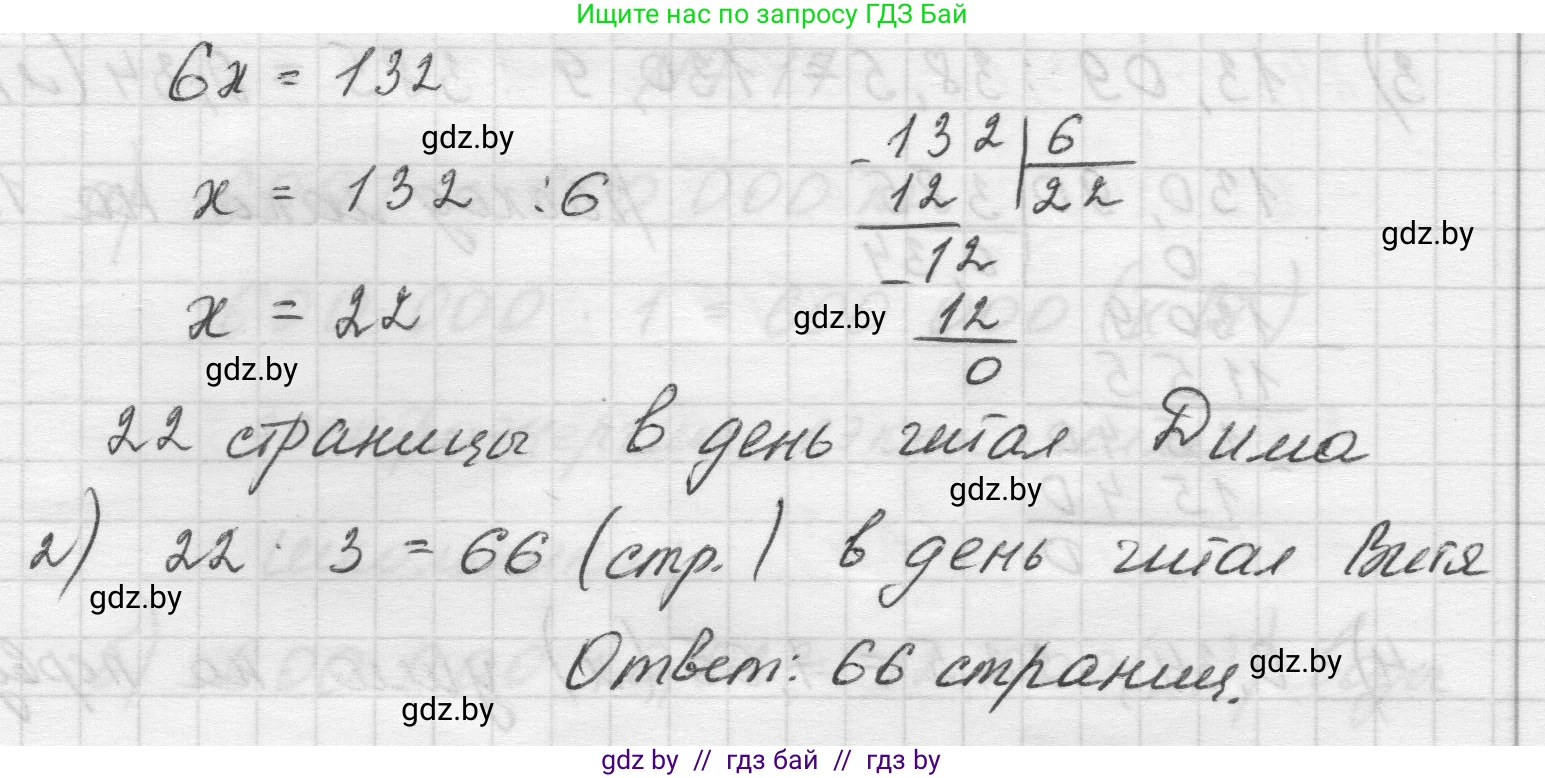 Ищите нас по запросу ГДЗ Бай
6x = 132
gdz.by
x = 132 : 6
x = 22
gdz.by
- 132 | 6
12 | 22
- 12
12
0
gdz.by
gdz.by
22 страницы в день читал Дима
gdz.by
2) 22 · 3 = 66 (стр.) в день читал Витя
gdz.by
Ответ: 66 страниц.
gdz.by
gdz.by
gdz by // гдз бай // гдз by